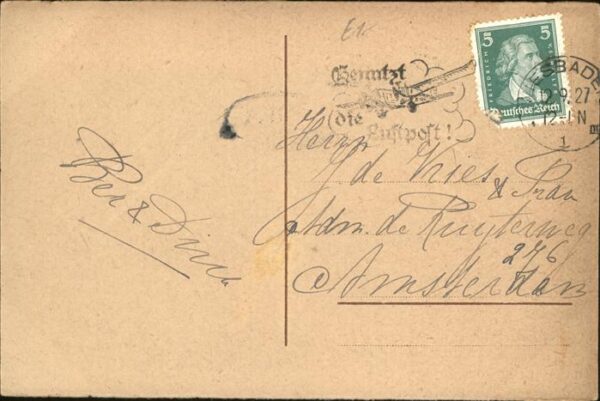 Benutzt
die Luftpost!
5 5
FRIEDRICH
Deutsches Reich
ESBADEN
12.9.27
12-1N
1
Herrn
J de Vries & Frau
Adm. de Ruyterweg
276
Amsterdam
Ben & Dina